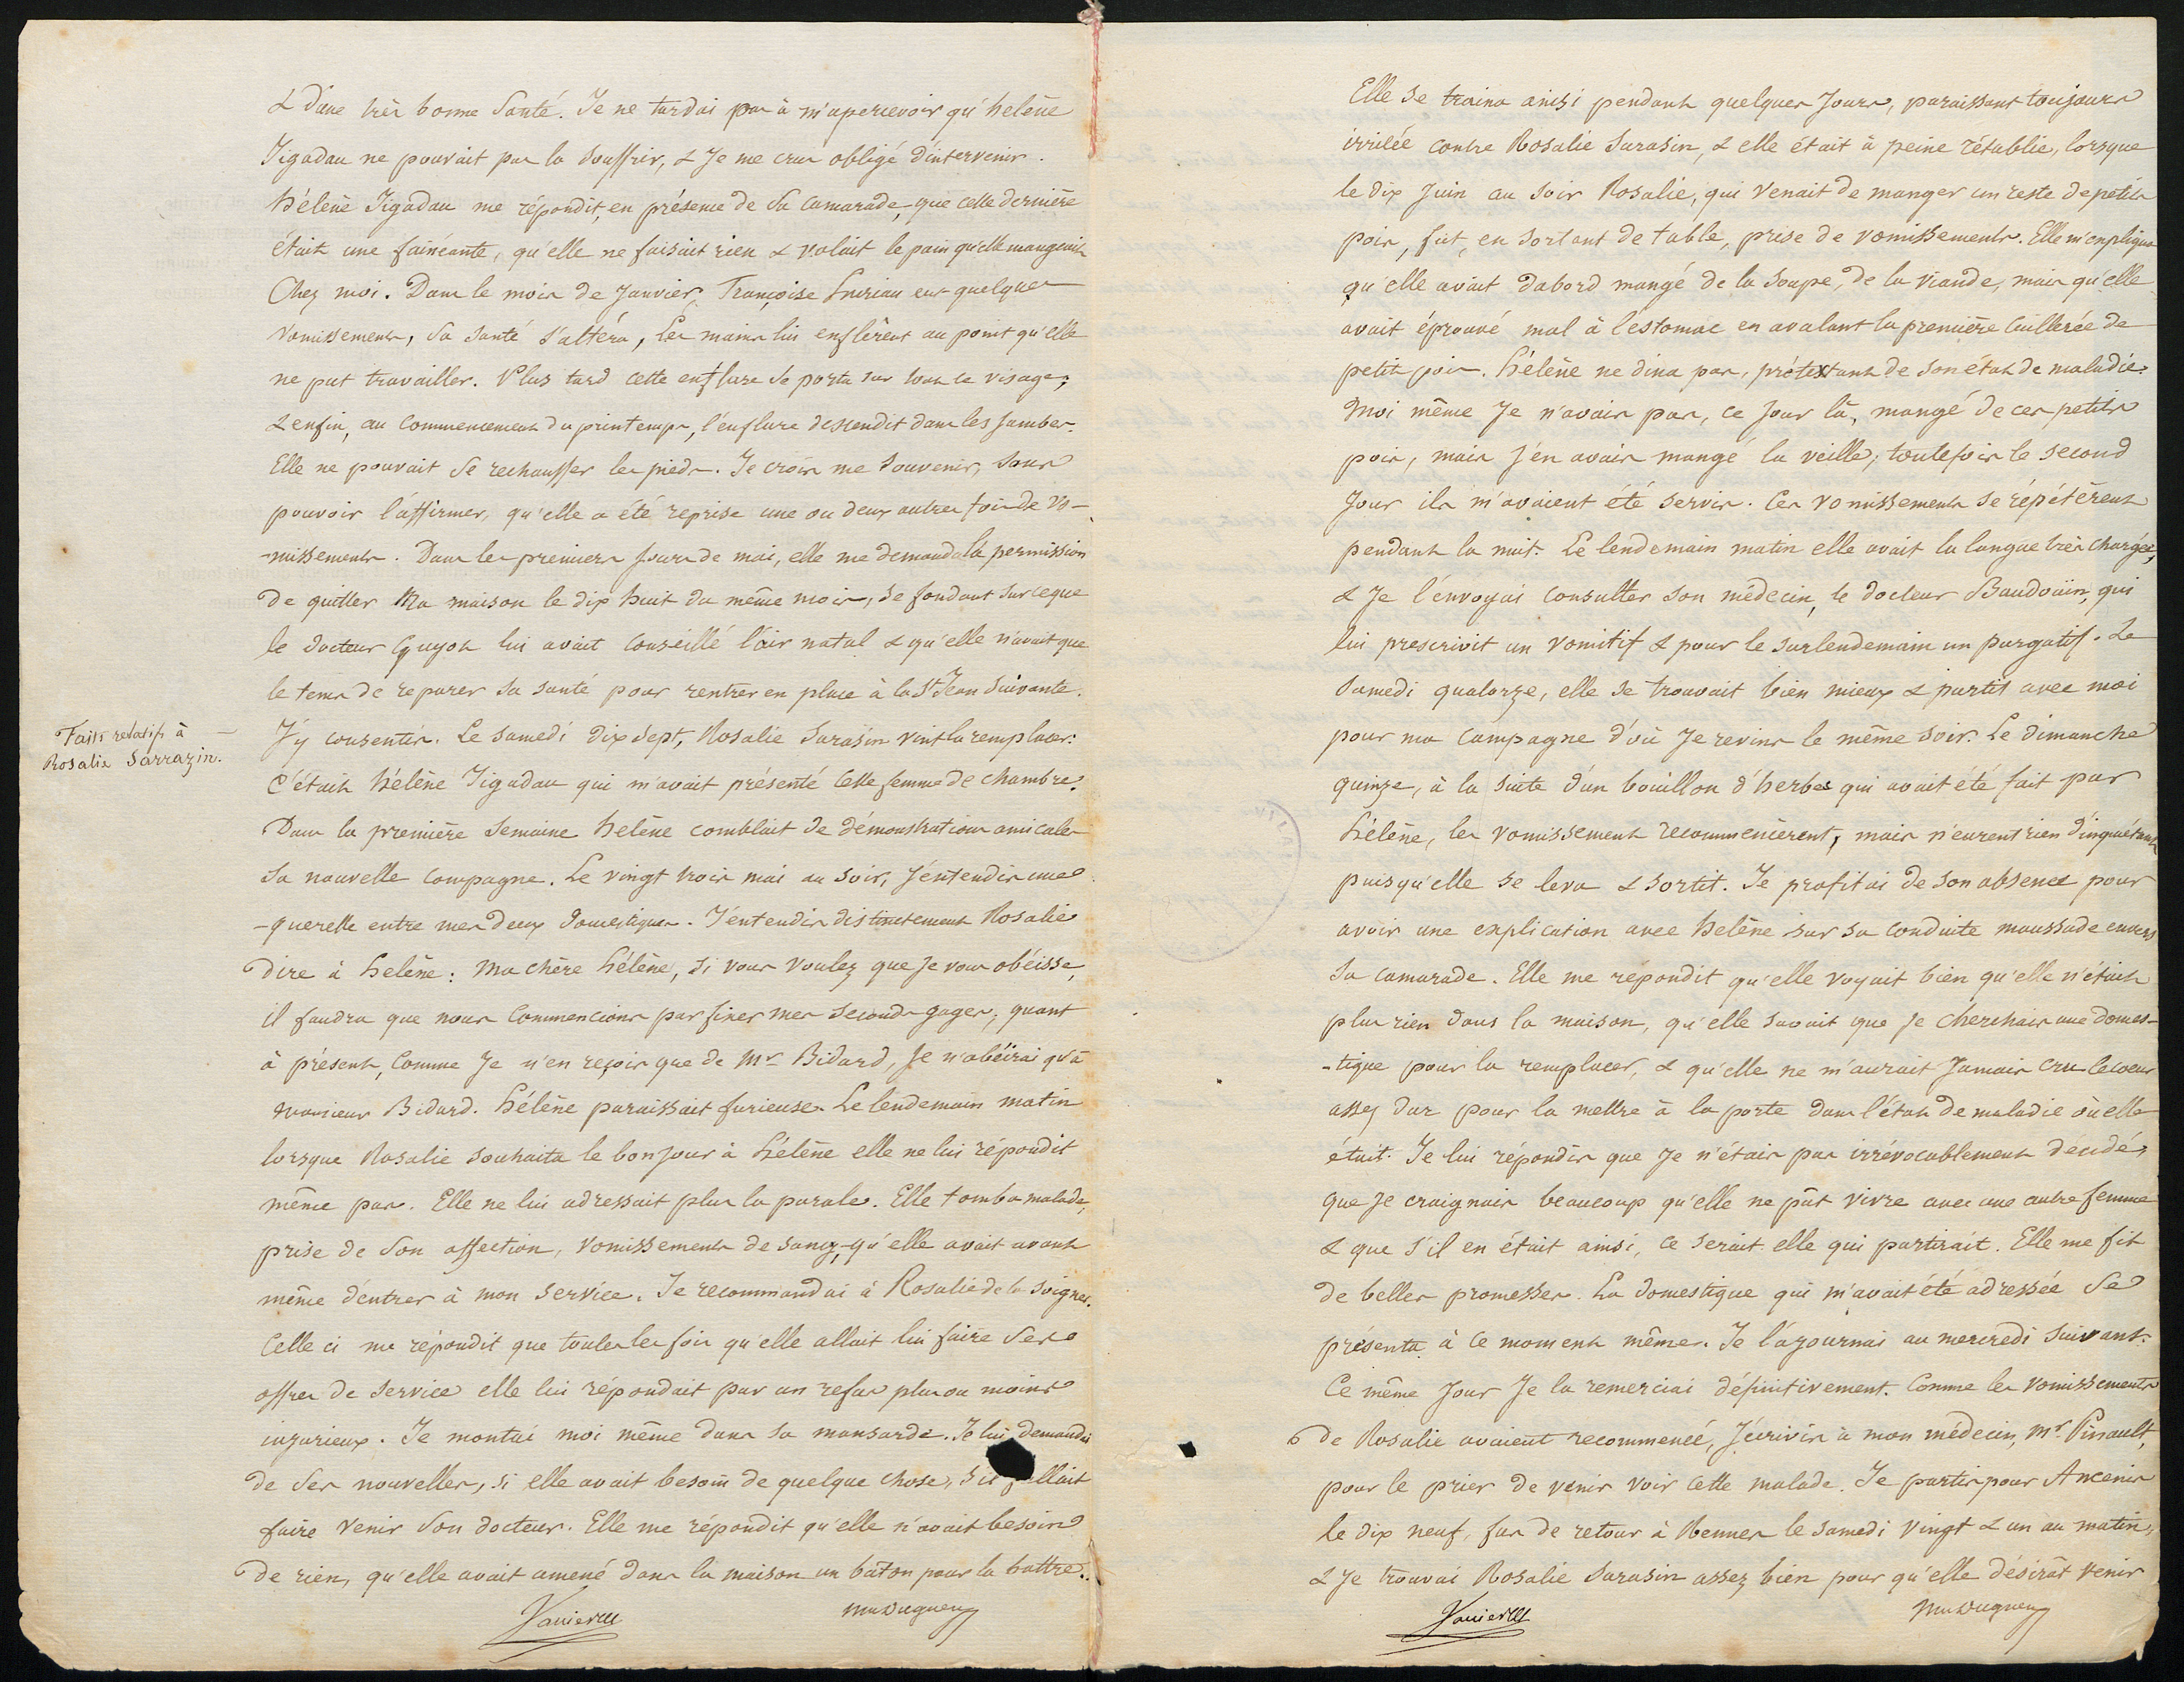 & d'une très bonne santé. Je ne tardai pas à m'apercevoir qu'helène
Jigadau ne pouvait pas la souffrir, & Je me crus obligé d'intervenir.
hélène Jigadau me répondit, en présence de sa camarade, que cette dernière
était une fainéante, qu'elle ne faisait rien & volait le pain qu'elle mangeait
Chez moi. Dans le mois de Janvier, Françoise huriau eut quelques
vomissements, sa santé s'altéra, les mains lui enflèrent au point qu'elle
ne put travailler. Plus tard cette enflure se porta sur tout le visage,
& enfin, au commencement du printemps, l'enflure descendit dans les Jambes.
Elle ne pouvait se rechauffer les pieds. Je crois me souvenir, sans
pouvoir l'affirmer, qu'elle a été reprise une ou deux autres fois de vo-
-missements. Dans les premiers Jours de mai, elle me demanda la permission
de quitter Ma maison le dix huit du même mois, se fondant sur ce que
le docteur Guyot lui avait conseillé l'air natal & qu'elle n'avait que
le tems de reparer sa santé pour rentrer en place à la St Jean suivante.
Faits relatifs à
Rosalie Sarrazin.
J'y consentis. Le samedi dix sept, Rosalie Sarasin vint la remplacer.
C'était hélène Jigadau qui m'avait présenté cette femme de chambre.
Dans la première semaine helène comblait de démonstrations amicales
sa nouvelle compagne. Le vingt trois mai au soir, J'entendis une
-querelle entre mes deux domestiques. J'entendis distinctement Rosalie
dire à helène: Ma chère hélène, si vous voulez que Je vous obéisse,
il faudra que nous commencions par fixer mes seconds gages; quant
à présent, Comme Je n'en reçois que de Mr Bidard, Je n'obéirai qu'à
Monsieur Bidard. hélène paraissait furieuse. Le lendemain matin
lorsque Rosalie souhaita le bonjour à hélène elle ne lui répondit
même pas. Elle ne lui adressait plus la parole. Elle tomba malade,
prise de son affection, vomissements de sang, qu'elle avait avant
même d'entrer à mon service. Je recommandai à Rosalie de la soigner.
Celle ci me répondit que toutes les fois qu'elle allait lui faire ses
offres de service elle lui répondait par un refus plus ou moins
injurieux. Je montai moi même dans sa mansarde. Je lui demandai
de ses nouvelles, si elle avait besoin de quelque chose, s'il fallait
faire venir son docteur. Elle me répondit qu'elle n'avait besoin
de rien, qu'elle avait amené dans la maison un bâton pour la battre.
Elle se traina ainsi pendant quelques Jours, paraissant toujours
irritée contre Rosalie Sarasin, & elle était à peine rétablie, lorsque
le dix Juin au soir Rosalie, qui venait de manger un reste de petits
pois, fut, en sortant de table, prise de vomissements. Elle m'expliqua
qu'elle avait dabord mangé de la soupe, de la viande, mais qu'elle
avait éprouvé mal à l'estomac en avalant la première cuillerée de
petits pois. hélène ne dina pas, prétextant de son état de maladie.
Moi même Je n'avais pas, ce Jour là, mangé de ces petits
pois, mais J'en avais mangé la veille, toutefois le second
Jour ils m'avaient été servis. Ces vomissements se répétèrent
pendant la nuit. Le lendemain matin elle avait la langue très chargée,
& Je l'envoyai consulter son médecin, le docteur Baudouin, qui
lui prescrivit un vomitif & pour le surlendemain un purgatif. Le
Samedi quatorze, elle se trouvait bien mieux & partit avec moi
pour ma campagne d'où Je revins le même soir. Le dimanche
quinze, à la suite d'un bouillon d'herbes qui avait été fait par
hélène, les vomissements recommencèrent, mais n'eurent rien d'inquiétant
puisqu'elle se leva & sortit. Je profitai de son absence pour
avoir une explication avec helène sur sa conduite maussade envers
sa camarade. Elle me répondit qu'elle voyait bien qu'elle n'était
plus rien dans la maison, qu'elle savait que Je cherchais une domes-
-tique pour la remplacer, & qu'elle ne m'aurait Jamais cru le coeur
assez dur pour la mettre à la porte dans l'état de maladie où elle
était. Je lui répondis que Je n'étais pas irrévocablement décidé,
que Je craignais beaucoup qu'elle ne pût vivre avec une autre femme
& que s'il en était ainsi, ce serait elle qui partirait. Elle me fit
de belles promesses. La domestique qui m'avait été adressée se
présenta à ce moment même. Je l'ajournai au mercredi suivant.
Ce même Jour Je la remerciai définitivement. Comme les vomissements
de Rosalie avaient recommencé, J'écrivis à mon médecin, Mr Pinault,
pour le prier de venir voir cette malade. Je partis pour Ancenis
le dix neuf, fus de retour à Rennes le samedi vingt & un au matin,
& Je trouvai Rosalie Sarasin assez bien pour qu'elle désirât venir